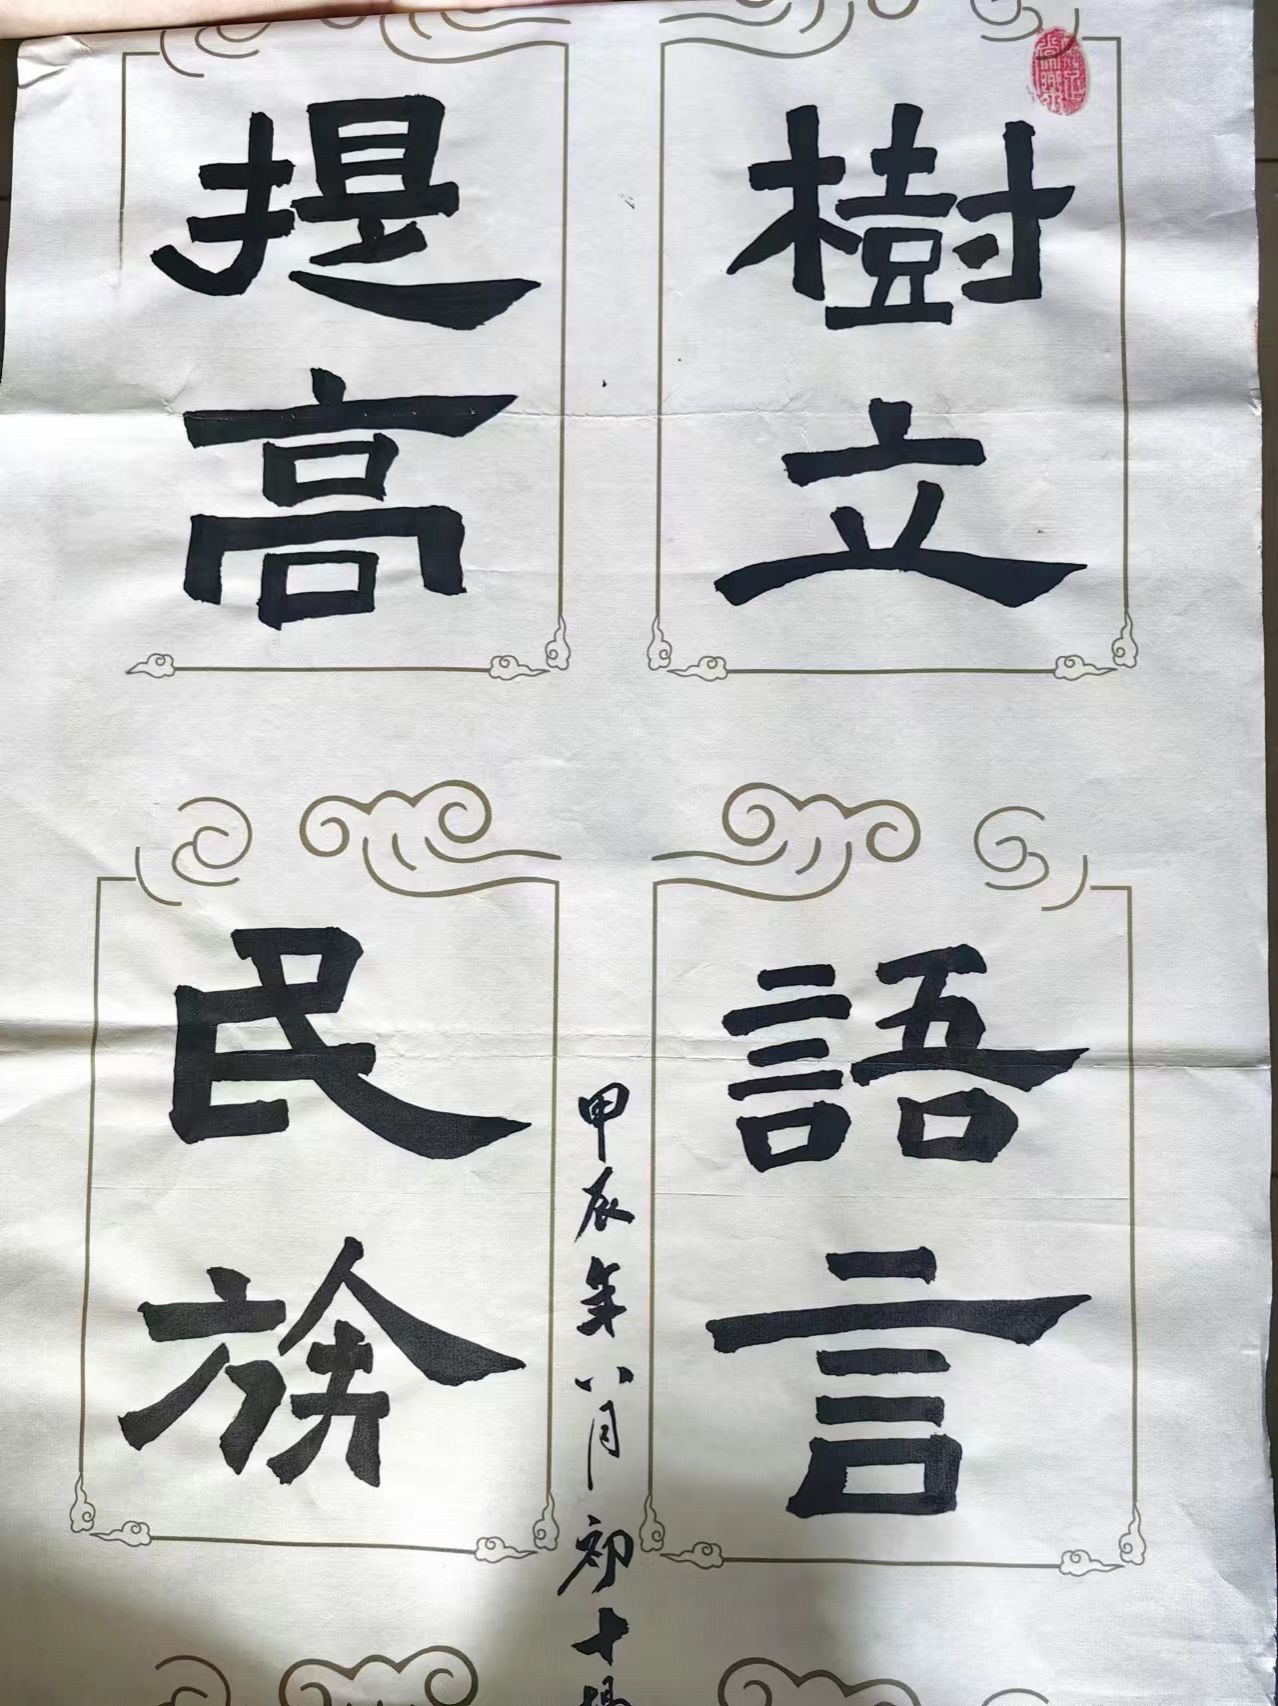 樹立語言
提高民族
甲辰年八月初十